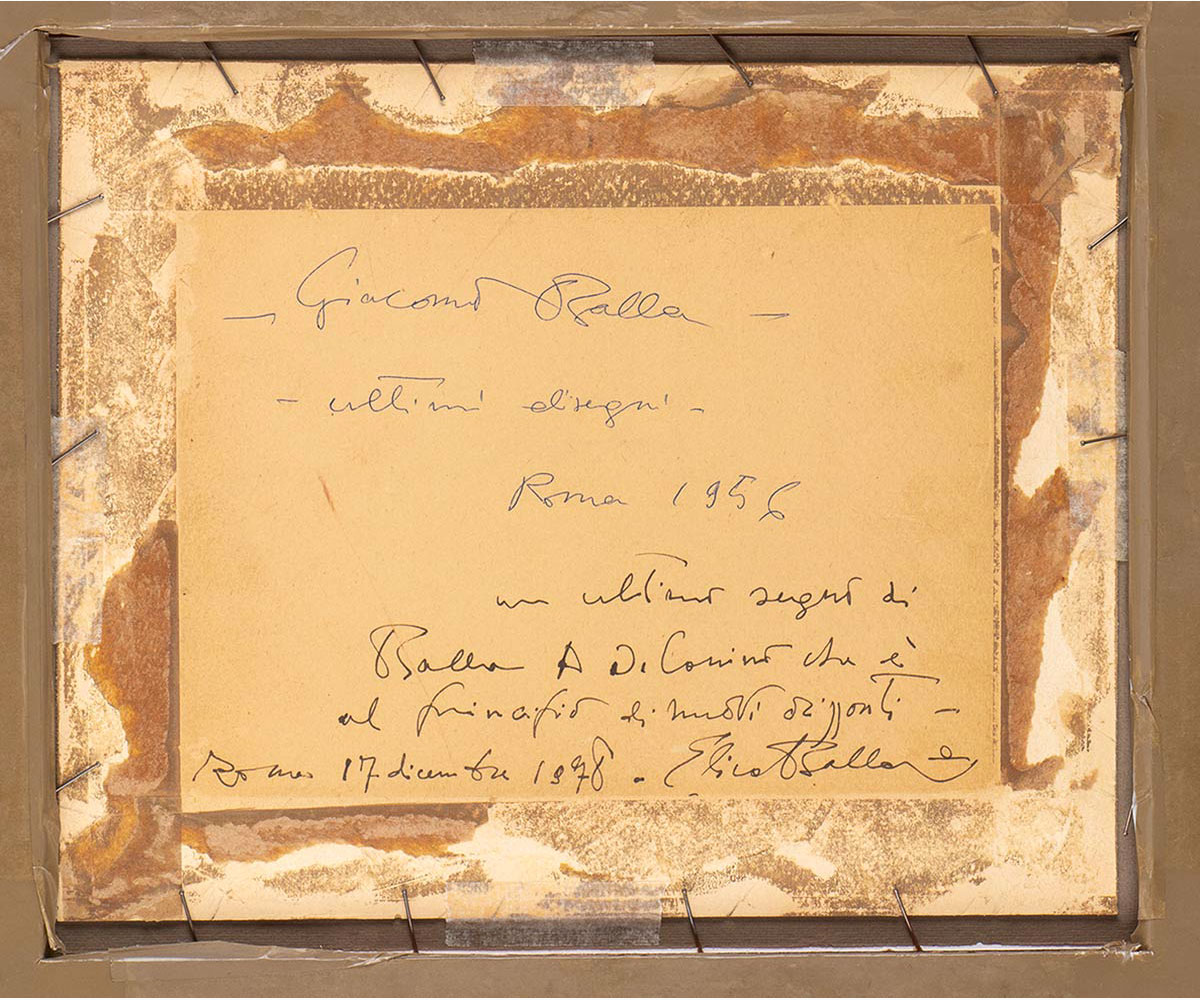 – Giacomo Balla –
– ultimi disegni –
Roma 1956
un ultimo segno di
Balla A Di Cosimo che è
al principio di nuovi
Roma 17 dicembre 1978. Elica Balla